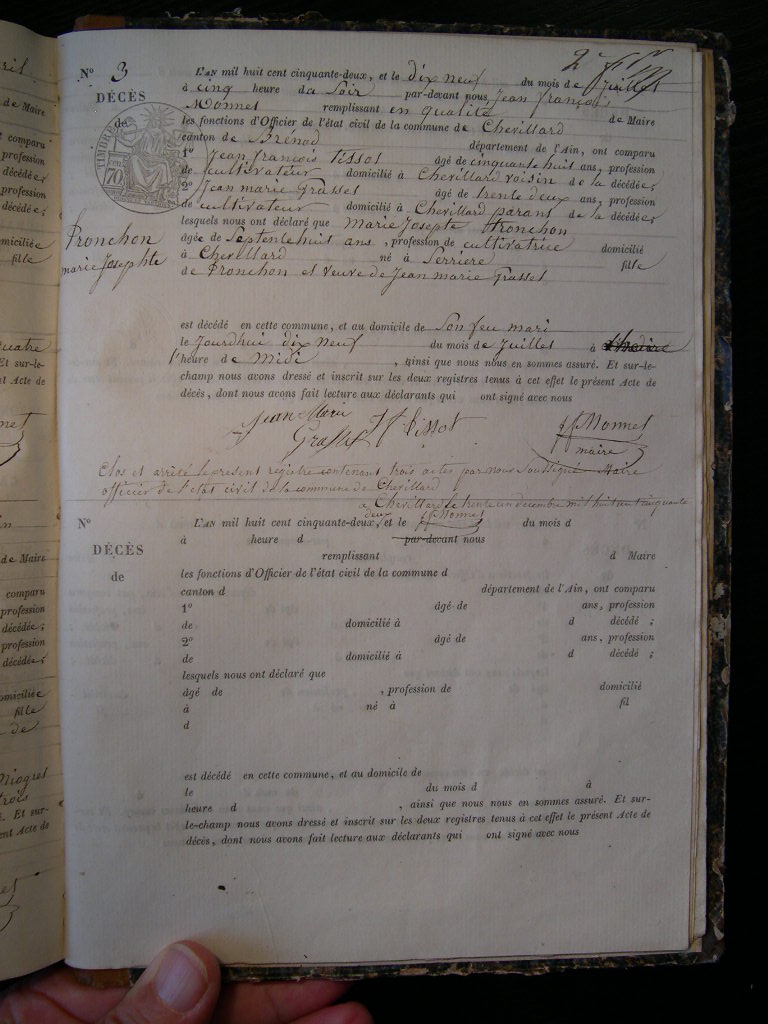 2e
Nº 3
L'AN mil huit cent cinquante-deux, et le dix neuf du mois de Juillet
DÉCÈS
à cinq heure du Soir par-devant nous Jean françois
Monnet remplissant en qualité de Maire
de
les fonctions d'Officier de l'état civil de la commune de Chevillard
canton de Brénod département de l'Ain, ont comparu
1º Jean françois Tissot âgé de cinquante huit ans, profession
de cultivateur domicilié à Chevillard voisin de la décédée;
2º Jean marie Grasset âgé de trente deux ans, profession
de cultivateur domicilié à Chevillard parant de la décédée;
lesquels nous ont déclaré que Marie Josepte Tronchon
Tronchon
marie Josephte
âgée de Septente huit ans, profession de cultivatrice domicilié
à Chevillard né à Serriere fille
de Tronchon et veuve de Jean marie Grasset
est décédé en cette commune, et au domicile de Son feu mari
le Jourdhui dix neuf du mois de Juillet à
l'heure de Midi, ainsi que nous nous en sommes assuré. Et sur-le-
champ nous avons dressé et inscrit sur les deux registres tenus à cet effet le présent Acte de
décès, dont nous avons fait lecture aux déclarants qui ont signé avec nous
Jean Marie Grasset
Jf Tissot
jf Monnet
maire
Clos et arrêté le present registre contenant trois actes par nous Soussigné Maire
officier de l'etat civil de la commune de Chevillard
a Chevillard le trente un decembre mil huit cent cinquante
deux jf Monnet
Nº
L'AN mil huit cent cinquante-deux, et le du mois d
DÉCÈS
à heure d par-devant nous
remplissant d Maire
de
les fonctions d'Officier de l'état civil de la commune d
canton d département de l'Ain, ont comparu
1º âgé de ans, profession
de domicilié à d décédé ;
2º âgé de ans, profession
de domicilié à d décédé ;
lesquels nous ont déclaré que
âgé de , profession de domicilié
à né à fil
d
est décédé en cette commune, et au domicile de
le du mois d à
heure d , ainsi que nous nous en sommes assuré. Et sur-
le-champ nous avons dressé et inscrit sur les deux registres tenus à cet effet le présent Acte de
décès, dont nous avons fait lecture aux déclarants qui ont signé avec nous